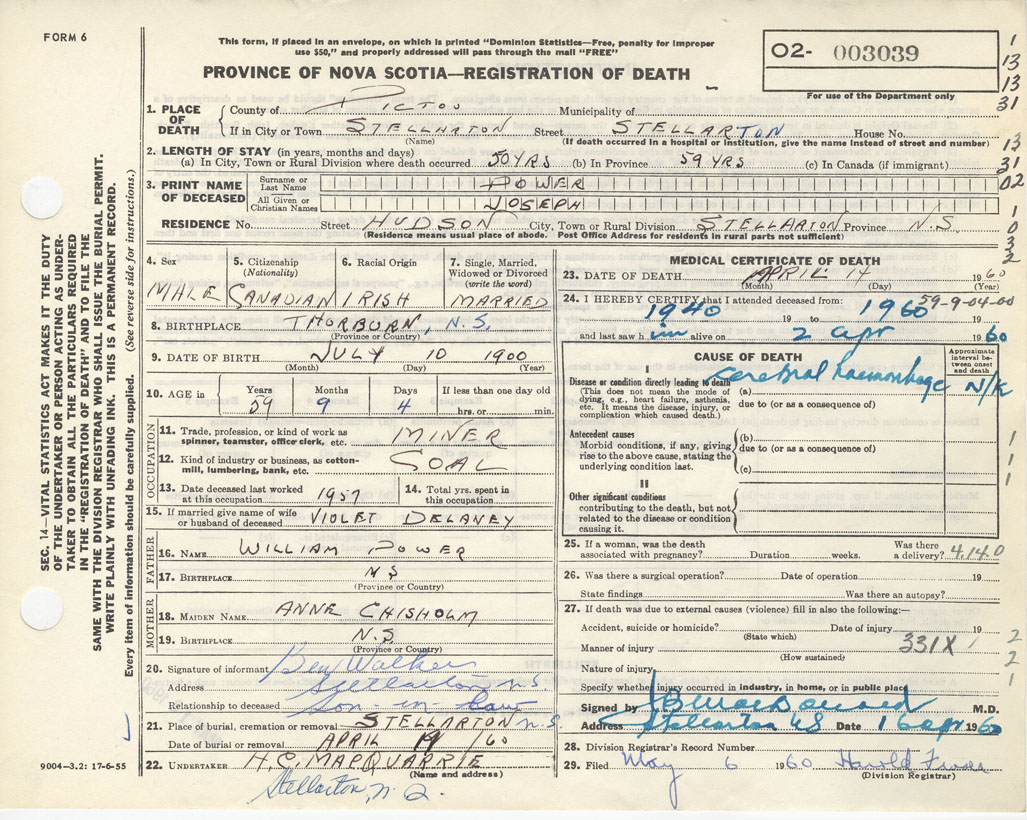 FORM 6
This form, if placed in an envelope, on which is printed "Dominion Statistics—Free, penalty for improper
use $50," and properly addressed will pass through the mail "FREE"
PROVINCE OF NOVA SCOTIA—REGISTRATION OF DEATH
O2- 003039
For use of the Department only
1
13
13
31
13
31
02
1
0
3
2
SEC. 14—VITAL STATISTICS ACT MAKES IT THE DUTY
OF THE UNDERTAKER OR PERSON ACTING AS UNDER-
TAKER TO OBTAIN ALL THE PARTICULARS REQUIRED
IN THE "REGISTRATION OF DEATH" AND FILE THE
SAME WITH THE DIVISION REGISTRAR WHO SHALL ISSUE THE BURIAL PERMIT.
WRITE PLAINLY WITH UNFADING INK. THIS IS A PERMANENT RECORD.
Every item of information should be carefully supplied. (See reverse side for instructions.)
1. PLACE OF DEATH
County of PICTOU Municipality of
If in City or Town STELLARTON Street STELLARTON House No.
(Name) (If death occurred in a hospital or institution, give the name instead of street and number)
2. LENGTH OF STAY (in years, months and days)
(a) In City, Town or Rural Division where death occurred 50 YRS (b) In Province 59 YRS (c) In Canada (if immigrant)
3. PRINT NAME OF DECEASED
Surname or Last Name POWER
All Given or Christian Names JOSEPH
RESIDENCE No. Street HUDSON City, Town or Rural Division STELLARTON Province N.S
(Residence means usual place of abode. Post Office Address for residents in rural parts not sufficient)
4. Sex
MALE
5. Citizenship
(Nationality)
CANADIAN
6. Racial Origin
IRISH
7. Single, Married,
Widowed or Divorced
(write the word)
MARRIED
8. BIRTHPLACE THORBURN, N.S.
(Province or Country)
9. DATE OF BIRTH JULY 10 1900
(Month) (Day) (Year)
10. AGE in Years Months Days If less than one day old
59 9 4 hrs. or min.
OCCUPATION
11. Trade, profession, or kind of work as
spinner, teamster, office clerk, etc. MINER
12. Kind of industry or business, as cotton-
mill, lumbering, bank, etc. COAL
13. Date deceased last worked
at this occupation 1957
14. Total yrs. spent in
this occupation
15. If married give name of wife
or husband of deceased VIOLET DELANEY
FATHER
16. NAME WILLIAM POWER
17. BIRTHPLACE N S
(Province or Country)
MOTHER
18. MAIDEN NAME ANNE CHISHOLM
19. BIRTHPLACE N.S.
(Province or Country)
20. Signature of informant Ben Walker
Address Stellarton N.S.
Relationship to deceased son-in-law
21. Place of burial, cremation or removal STELLARTON N.S.
Date of burial or removal APRIL /60
22. UNDERTAKER H.C. MACQUARRIE
(Name and address)
Stellarton, N.S.
9004—3.2: 17-6-55
MEDICAL CERTIFICATE OF DEATH
23. DATE OF DEATH APRIL 14 1960
(Month) (Day)
59-9-04-00
24. I HEREBY CERTIFY that I attended deceased from:
1940 19 to 1960 19
and last saw h im alive on 2 apr 1960
CAUSE OF DEATH
Approximate
interval be-
tween onset
and death
I
Disease or condition directly leading to death
(This does not mean the mode of
dying, e.g., heart failure, asthenia,
etc. It means the disease, injury, or
complication which caused death.)
(a) Cerebral haemorrhage N/K
due to (or as a consequence of)
Antecedent causes
Morbid conditions, if any, giving
rise to the above cause, stating the
underlying condition last.
(b)
due to (or as a consequence of)
(c)
1
1
1
II
Other significant conditions
contributing to the death, but not
related to the disease or condition
causing it.
25. If a woman, was the death
associated with pregnancy? Duration weeks. Was there
a delivery? 4.14.0
26. Was there a surgical operation? Date of operation 19
State findings Was there an autopsy?
27. If death was due to external causes (violence) fill in also the following:—
Accident, suicide or homicide? Date of injury 19
(State which)
Manner of injury 331X
(How sustained)
Nature of injury
Specify whether injury occurred in industry, in home, or in public place
2
2
1
Signed by M.D.
Address Stellarton NS Date 1960
28. Division Registrar's Record Number
29. Filed May 6 1960 Harold
(Division Registrar)